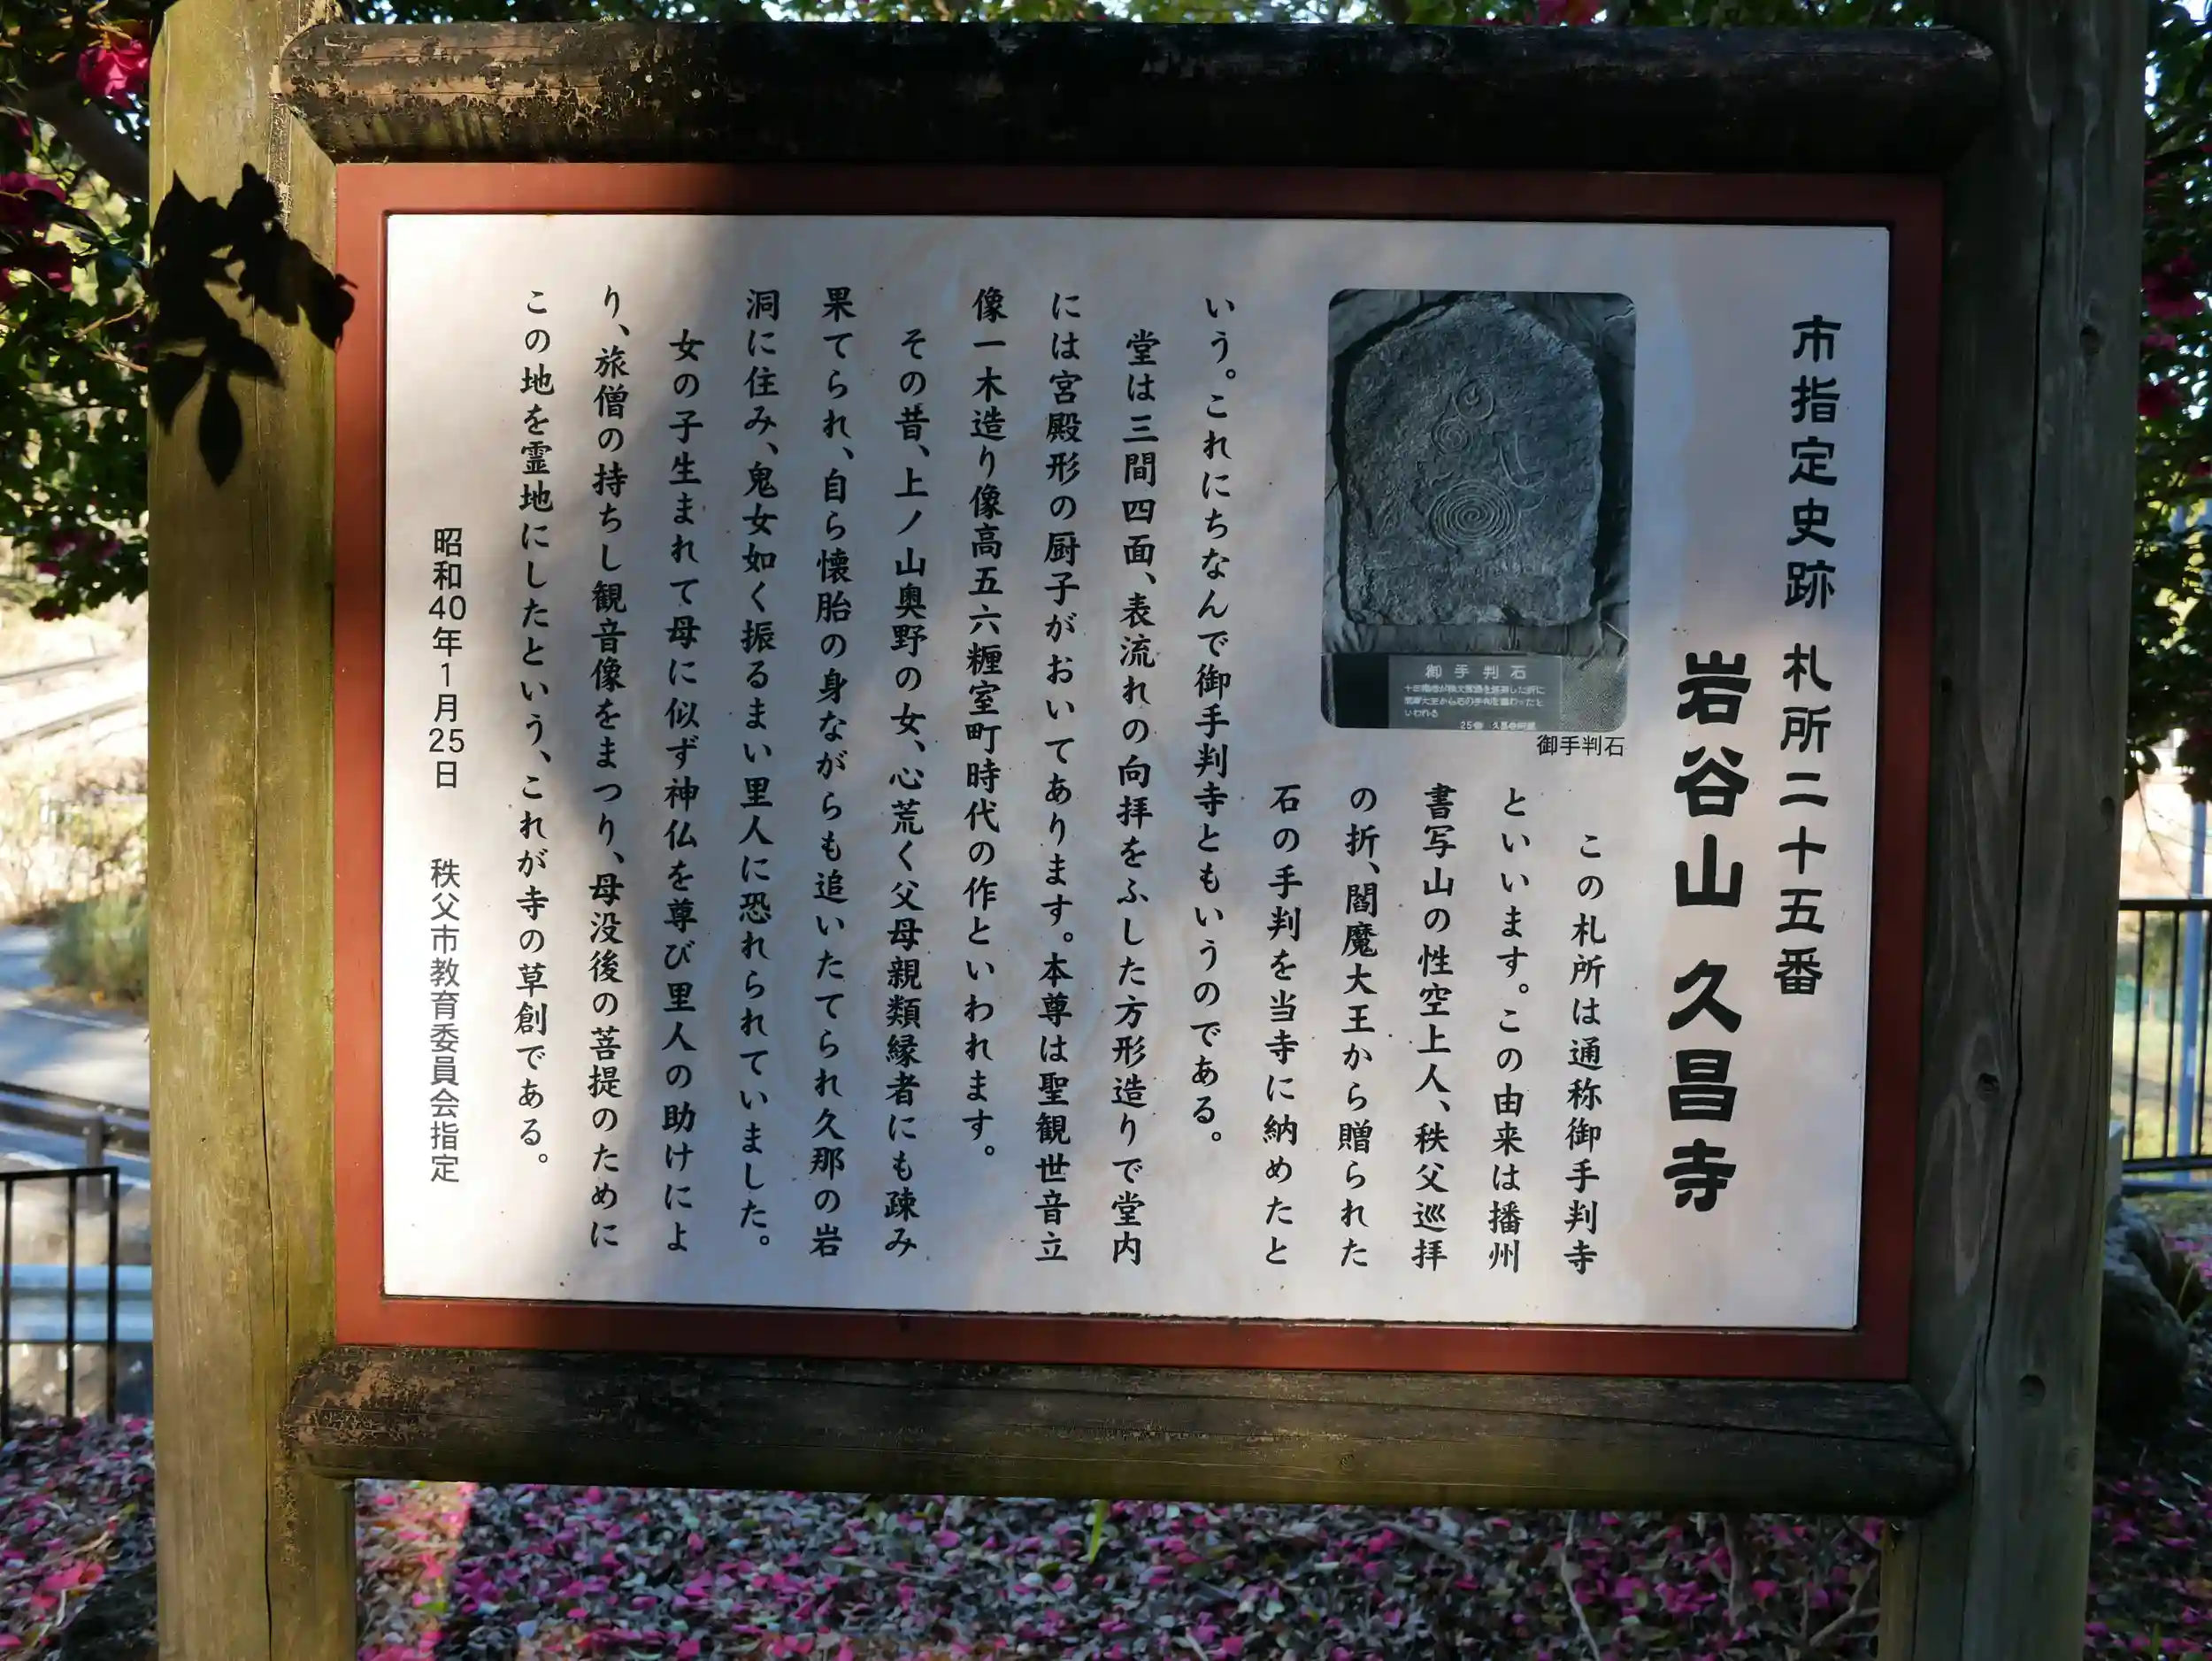 市指定史跡 札所二十五番
岩谷山 久昌寺
この札所は通称御手判寺
といいます。この由来は播州
書写山の性空上人、秩父巡拝
の折、閻魔大王から贈られた
石の手判を当寺に納めたと
いう。これにちなんで御手判寺ともいうのである。
堂は三間四面、表流れの向拝をふした方形造りで堂内
には宮殿形の厨子がおいてあります。本尊は聖観世音立
像一木造り像高五六糎室町時代の作といわれます。
その昔、上ノ山奥野の女、心荒く父母親類縁者にも疎み
果てられ、自ら懐胎の身ながらも追いたてられ久那の岩
洞に住み、鬼女如く振るまい里人に恐れられていました。
女の子生まれて母に似ず神仏を尊び里人の助けによ
り、旅僧の持ちし観音像をまつり、母没後の菩提のために
この地を霊地にしたという、これが寺の草創である。
昭和40年1月25日 秩父市教育委員会指定
御手判石
御手判石
いわれる